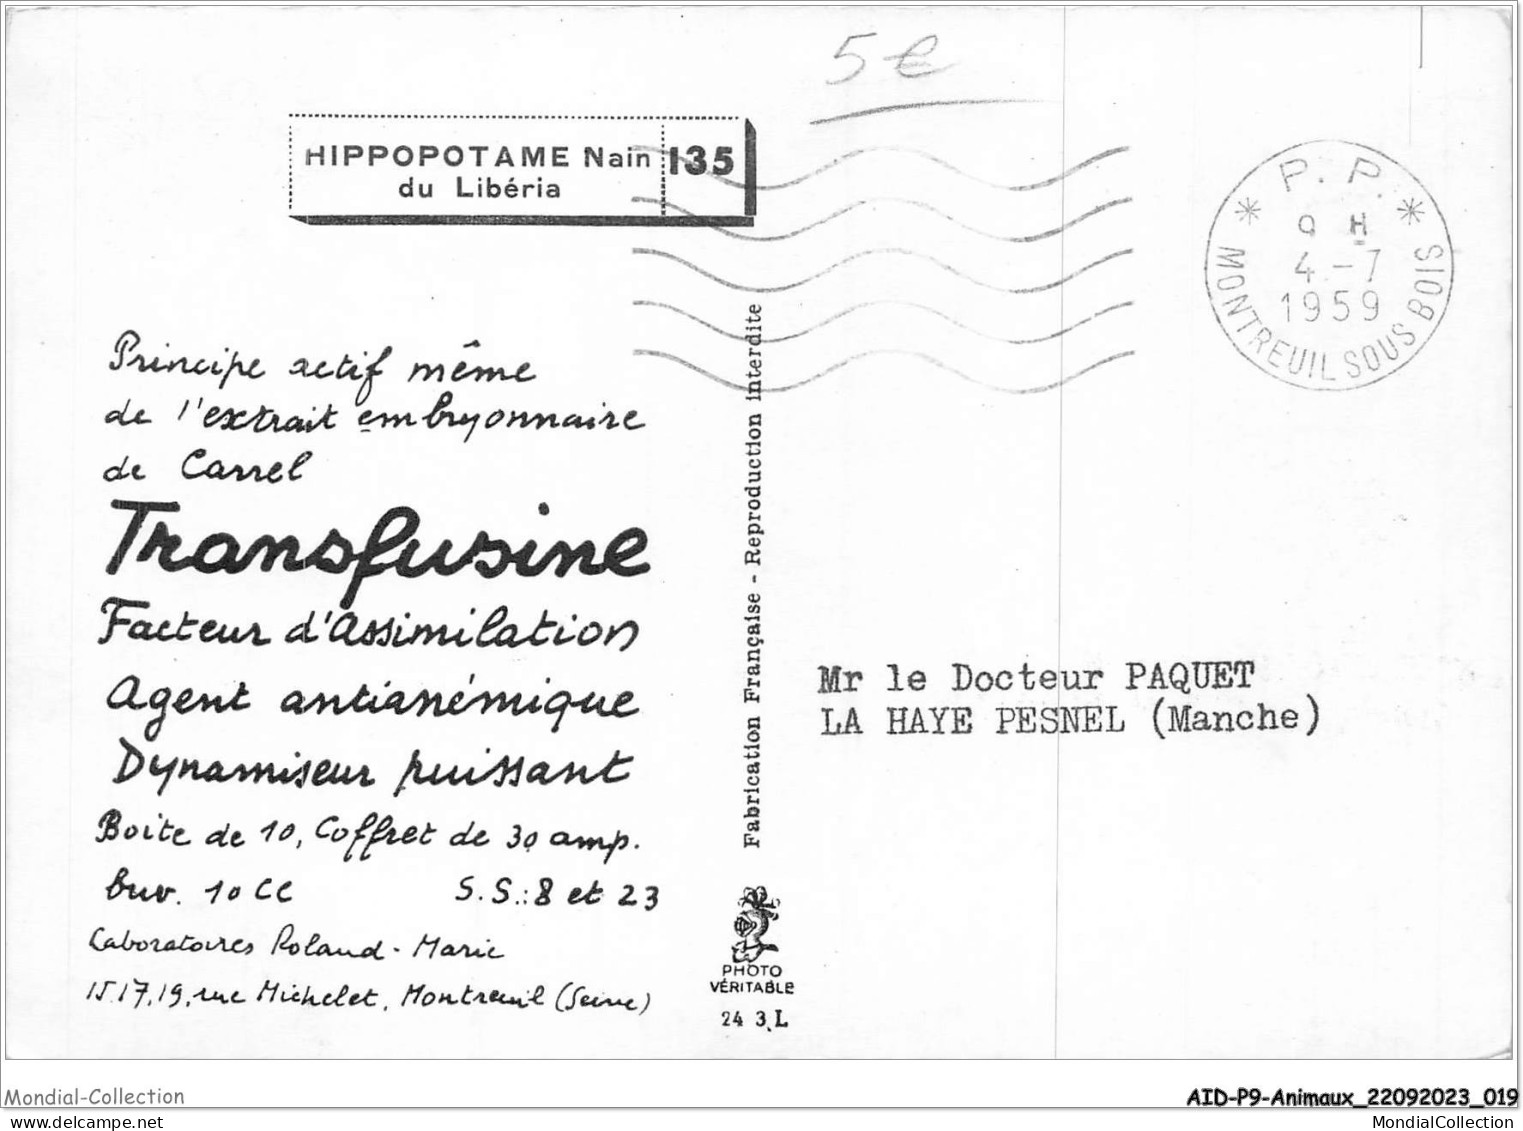 5 €
HIPPOPOTAME Nain 135
du Libéria
P. P.
9 H
4 - 7
1959
MONTREUIL SOUS BOIS
Principe actif même
de l'extrait embryonnaire
de Carrel
Transfusine
Facteur d'Assimilation
Agent antianémique
Dynamiseur puissant
Boite de 10, Coffret de 30 amp.
buv. 10 CC S.S.: 8 et 23
Laboratoires Roland-Marie
15.17.19, rue Michelet, Montreuil (Seine)
Fabrication Française - Reproduction interdite
PHOTO
VÉRITABLE
24 3 L
Mr le Docteur PAQUET
LA HAYE PESNEL (Manche)
Mondial-Collection
AID-P9-Animaux_22092023_019
MondialCollection